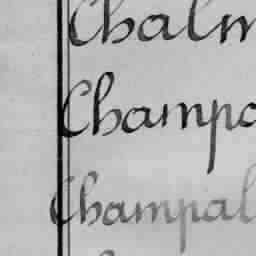 Chalm
Champa
Champal